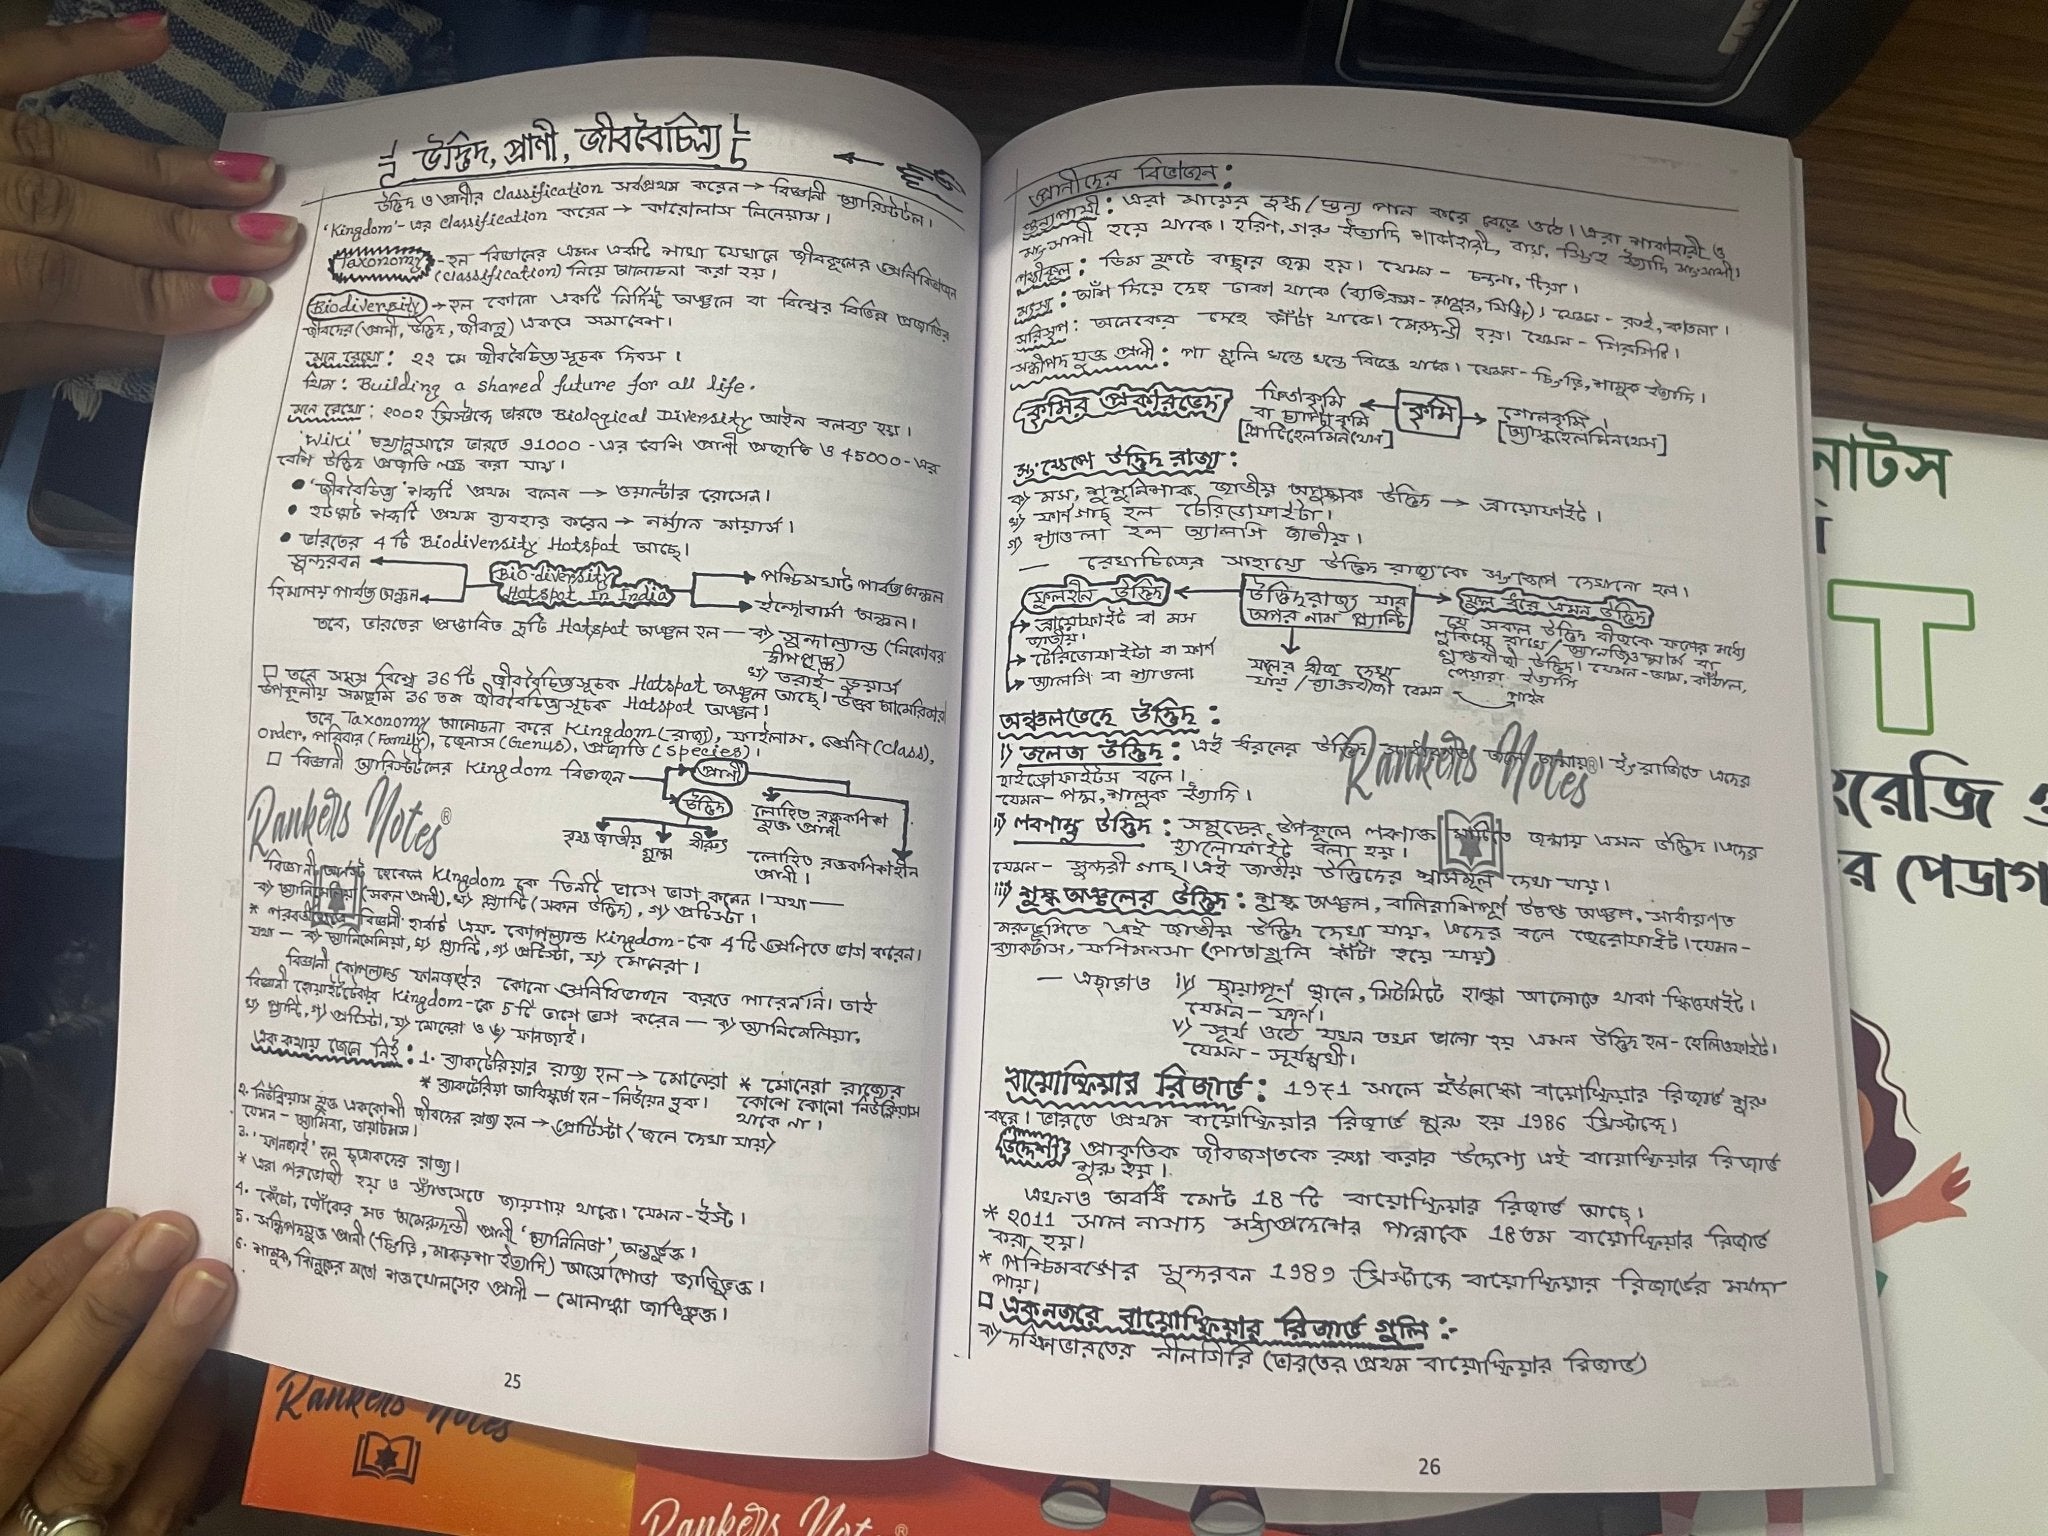 উদ্ভিদ, প্রাণী, জীববৈচিত্র্য
উদ্ভিদ ও প্রাণীর classification সর্বপ্রথম করেন → বিজ্ঞানী অ্যারিস্টটল।
'Kingdom'-এর classification করেন → ক্যারোলাস লিনিয়াস।
Taxonomy - হল বিজ্ঞানের এমন একটি শাখা যেখানে জীবকূলের শ্রেনিবিভাজন
(classification) নিয়ে আলোচনা করা হয়।
Biodiversity → হল কোনো একটি নির্দিষ্ট অঞ্চলে বা বিশ্বের বিভিন্ন প্রজাতির
জীবদের (প্রাণী, উদ্ভিদ, জীবানু) একত্রে সমাবেশ।
মনে রেখো: ২২ মে জীববৈচিত্র্যসূচক দিবস।
থিম: Building a shared future for all life.
মনে রেখো: ২০০২ খ্রিস্টাব্দে ভারতে Biological Diversity আইন বলবৎ হয়।
'Wiki' তথ্যানুসারে ভারতে 91000-এর বেশি প্রাণী প্রজাতি ও 45000-এর
বেশি উদ্ভিদ প্রজাতি লক্ষ্য করা যায়।
• 'জীববৈচিত্র্য' শব্দটি প্রথম বলেন → ওয়াল্টার রোসেন।
• হটস্পট শব্দটি প্রথম ব্যবহার করেন → নর্ম্যান মায়ার্স।
• ভারতের 4 টি Biodiversity Hotspot আছে।
সুন্দরবন
Bio-diversity Hotspot In India
পশ্চিমঘাট পার্বত্য অঞ্চল
হিমালয় পার্বত্য অঞ্চল
ইন্দোবার্মা অঞ্চল।
তবে, ভারতের প্রস্তাবিত দুটি Hotspot অঞ্চল হল — ক) সুন্দাল্যান্ড (নিকোবর
দ্বীপপুঞ্জ)
খ) তরাই-ডুয়ার্স
□ তবে সমগ্র বিশ্বে 36 টি জীববৈচিত্র্যসূচক Hotspot অঞ্চল আছে। উত্তর আমেরিকার
উপকূলীয় সমভূমি 36 তম জীববৈচিত্র্যসূচক Hotspot অঞ্চল।
তবে Taxonomy আলোচনা করে Kingdom (রাজ্য), ফাইলাম, শ্রেনি (class),
order, পরিবার (Family), জেনাস (Genus), প্রজাতি (species)।
□ বিজ্ঞানী অ্যারিস্টটলের Kingdom বিভাজন
প্রাণী
উদ্ভিদ
বৃক্ষ জাতীয়
গুল্ম
বীরুৎ
লোহিত রক্তকণিকা
যুক্ত প্রাণী
লোহিত রক্তকণিকাহীন
প্রাণী।
Rankers Notes®
বিজ্ঞানী আর্নস্ট হেকেল Kingdom কে তিনটি ভাগে ভাগ করেন। যথা —
ক) অ্যানিমেলিয়া (সকল প্রাণী), খ) প্ল্যান্টি (সকল উদ্ভিদ), গ) প্রটিস্টা।
* পরবর্তীকালে বিজ্ঞানী হার্বার্ট এফ. কোপল্যান্ড Kingdom-কে 4 টি শ্রেনিতে ভাগ করেন।
যথা — ক) অ্যানিমেলিয়া, খ) প্ল্যান্টি, গ) প্রটিস্টা, ঘ) মোনেরা।
বিজ্ঞানী কোপল্যান্ড ফানজাই'র কোনো শ্রেনিবিভাজন করতে পারেননি। তাই
বিজ্ঞানী হোয়াইটটেকার Kingdom-কে 5 টি ভাগে ভাগ করেন — ক) অ্যানিমেলিয়া,
খ) প্ল্যান্টি, গ) প্রটিস্টা, ঘ) মোনেরা ও ঙ) ফানজাই।
এক কথায় জেনে নিই: 1. ব্যাকটেরিয়ার রাজ্য হল → মোনেরা * মোনেরা রাজ্যের
* ব্যাকটেরিয়া আবিষ্কর্তা হল - লিউয়েন হুক। কোশে কোনো নিউক্লিয়াস
থাকে না।
2. নিউক্লিয়াস যুক্ত এককোশী জীবদের রাজ্য হল → প্রোটিস্টা (জলে দেখা যায়)
যেমন - অ্যামিবা, ডায়াটমস।
3. 'ফানজাই' হল ছত্রাকদের রাজ্য।
* এরা পরভোজী হয় ও স্যাঁতসেতে জায়গায় থাকে। যেমন - ইস্ট।
4. কেঁচো, জোঁকের মত অমেরুদন্ডী প্রাণী 'অ্যানিলিডা' অন্তর্ভুক্ত।
5. সন্ধিপদযুক্ত প্রানী (চিংড়ি, মাকড়শা ইত্যাদি) আর্থ্রোপোডা জাতিভুক্ত।
6. শামুক, ঝিনুকের মতো শক্ত খোলসের প্রাণী — মোলাস্কা জাতিভুক্ত।
25
প্রাণীদের বিভাজন:
স্তন্যপায়ী: এরা মায়ের দুগ্ধ/স্তন্য পান করে বেড়ে ওঠে। এরা শাকাহারী ও
মাংসাশী হয়ে থাকে। হরিণ, গরু ইত্যাদি শাকাহারী, বাঘ, সিংহ ইত্যাদি মাংসাশী।
পক্ষীকূল: ডিম ফুটে বাচ্চার জন্ম হয়। যেমন - চন্দনা, টিয়া।
মৎস্য: আঁশ দিয়ে দেহ ঢাকা থাকে (ব্যতিক্রম - মাগুর, শিঙি)। যেমন - রুই, কাতলা।
সরিসৃপ: অনেকের দেহে কাঁটা থাকে। মেরুদন্ডী হয়। যেমন - গিরগিটি।
সন্ধীপদ যুক্ত প্রাণী: পা গুলি খন্ডে খন্ডে বিভক্ত থাকে। যেমন - চিংড়ি, শামুক ইত্যাদি।
কৃমির প্রকারভেদ
ফিতাকৃমি
বা চ্যাপ্টাকৃমি
[প্লাটিহেলমিনথেস]
কৃমি
গোলকৃমি।
[অ্যাস্কহেলমিনথেস]
সংক্ষেপে উদ্ভিদ রাজ্য:
ক) মস, শুশুনিশাক জাতীয় অপুষ্পক উদ্ভিদ → ব্রায়োফাইট।
খ) ফার্ণ গাছ হল টেরিডোফাইটা।
গ) শ্যাওলা হল অ্যালগি জাতীয়।
— রেখাচিত্রের সাহায্যে উদ্ভিদ রাজ্যকে সংক্ষেপে দেখানো হল।
ফুলহীন উদ্ভিদ
উদ্ভিদরাজ্য যার
অপর নাম প্ল্যান্টি
ফুল ধরে এমন উদ্ভিদ
→ ব্রায়োফাইট বা মস
জাতীয়।
→ টেরিডোফাইটা বা ফার্ণ
→ অ্যালগি বা শ্যাওলা
ফলের বীজ দেখা
যায়/ব্যক্তবীজী যেমন - পাইন
যে সকল উদ্ভিদ বীজকে ফলের মধ্যে
লুকিয়ে রাখে/অ্যানজিওস্পার্ম বা
গুপ্তবীজী উদ্ভিদ। যেমন - আম, কাঁঠাল,
পেয়ারা ইত্যাদি
অঞ্চলভেদে উদ্ভিদ:
i) জলজ উদ্ভিদ: এই ধরনের উদ্ভিদ সাধারণত জলে জন্মায়। ইংরাজিতে এদের
হাইড্রোফাইটস বলে।
যেমন - পদ্ম, শালুক ইত্যাদি।
Rankers Notes®
ii) লবণাম্বু উদ্ভিদ: সমুদ্রের উপকূলে লবণাক্ত মাটিতে জন্মায় এমন উদ্ভিদ। এদের
হ্যালোফাইট বলা হয়।
যেমন - সুন্দরী গাছ। এই জাতীয় উদ্ভিদের শ্বাসমূল দেখা যায়।
iii) শুষ্ক অঞ্চলের উদ্ভিদ: শুষ্ক অঞ্চল, বালিরাশিপূর্ণ উত্তপ্ত অঞ্চল, সাধারণত
মরুভূমিতে এই জাতীয় উদ্ভিদ দেখা যায়, এদের বলে জেরোফাইট। যেমন -
ক্যাকটাস, ফণিমনসা (পাতাগুলি কাঁটা হয়ে যায়)
— এছাড়াও iv) ছায়াপূর্ণ স্থানে, মিটমিটে হাল্কা আলোতে থাকা স্কিওফাইট।
যেমন - ফার্ন।
v) সূর্য ওঠে যখন তখন ভালো হয় এমন উদ্ভিদ হল - হেলিওফাইট।
যেমন - সূর্যমুখী।
বায়োস্ফিয়ার রিজার্ভ: 1971 সালে ইউনেস্কো বায়োস্ফিয়ার রিজার্ভ শুরু
করে। ভারতে প্রথম বায়োস্ফিয়ার রিজার্ভ শুরু হয় 1986 খ্রিস্টাব্দে।
উদ্দেশ্য প্রাকৃতিক জীবজগতকে রক্ষা করার উদ্দেশ্যে এই বায়োস্ফিয়ার রিজার্ভ
শুরু হয়।
এখনও অবধি মোট 18 টি বায়োস্ফিয়ার রিজার্ভ আছে।
* 2011 সাল নাগাদ মধ্যপ্রদেশের পান্নাকে 18 তম বায়োস্ফিয়ার রিজার্ভ
করা হয়।
* পশ্চিমবঙ্গের সুন্দরবন 1989 খ্রিস্টাব্দে বায়োস্ফিয়ার রিজার্ভের মর্যাদা
পায়।
□ একনজরে বায়োস্ফিয়ার রিজার্ভ গুলি:-
ক) দক্ষিনভারতের নীলগিরি (ভারতের প্রথম বায়োস্ফিয়ার রিজার্ভ)
26
নোটস
T
ইংরেজি ও
র পেডাগ
Rankers Notes
Rankers Not ®